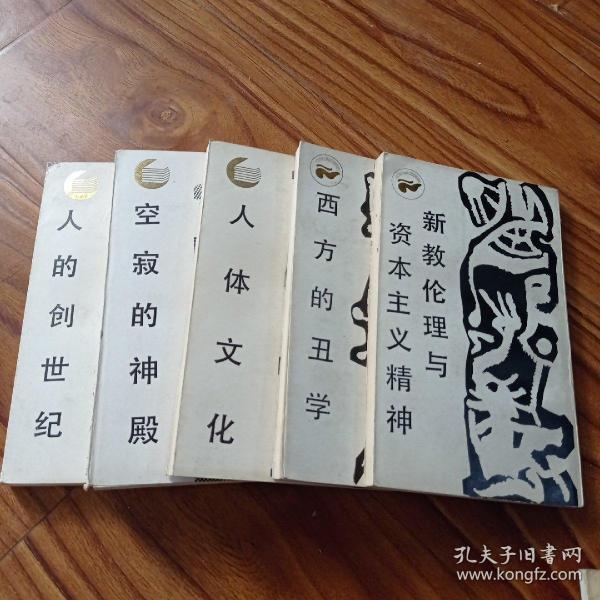 人的创世纪
空寂的神殿
人体文化
西方的丑学
新教伦理与
资本主义精神
孔夫子旧书网
www.kongfz.com